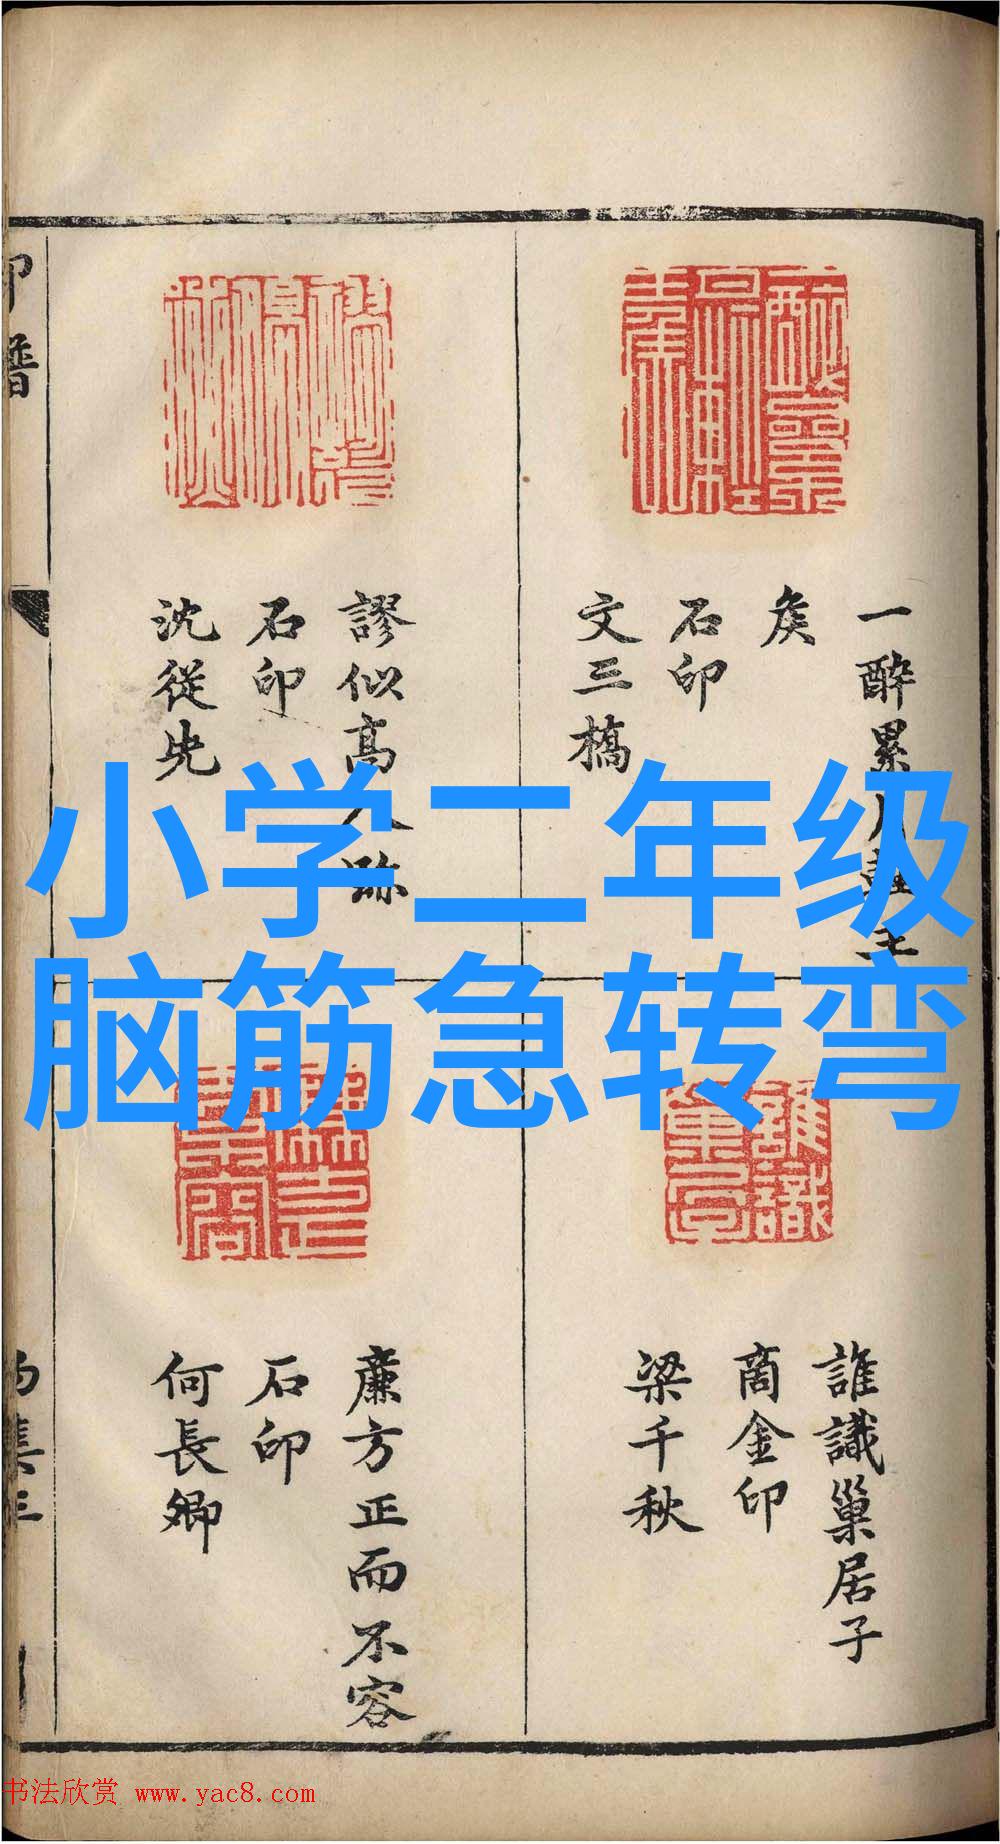 小学二年级
脑筋急转弯
一醉累月輕王
矦
石印
文三橋
謬似高人跡
石印
沈從先
誰識巢居子
商金印
梁千秋
廉方正而不容
石印
何長卿
印譜
书法欣赏 www.yac8.com